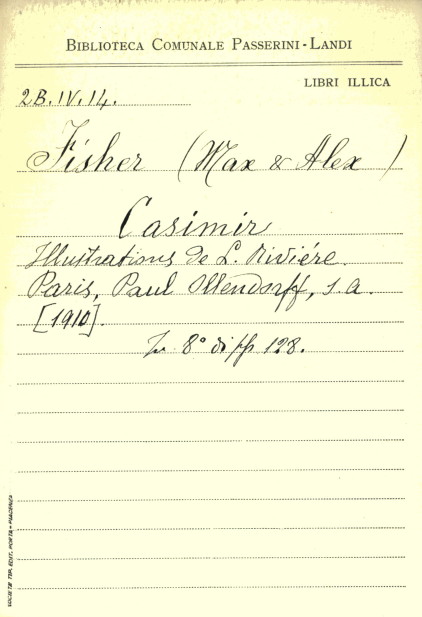 BIBLIOTECA COMUNALE PASSERINI-LANDI
LIBRI ILLICA
2B.IV.14.
Fisher (Max & Alex)
Casimir
Illustrations de L. Riviére.
Paris, Paul Ollendorff, s.a.
[1910].
In 8° di pp 128.
SOCIETÀ TIP. EDIT. PORTA - PIACENZA